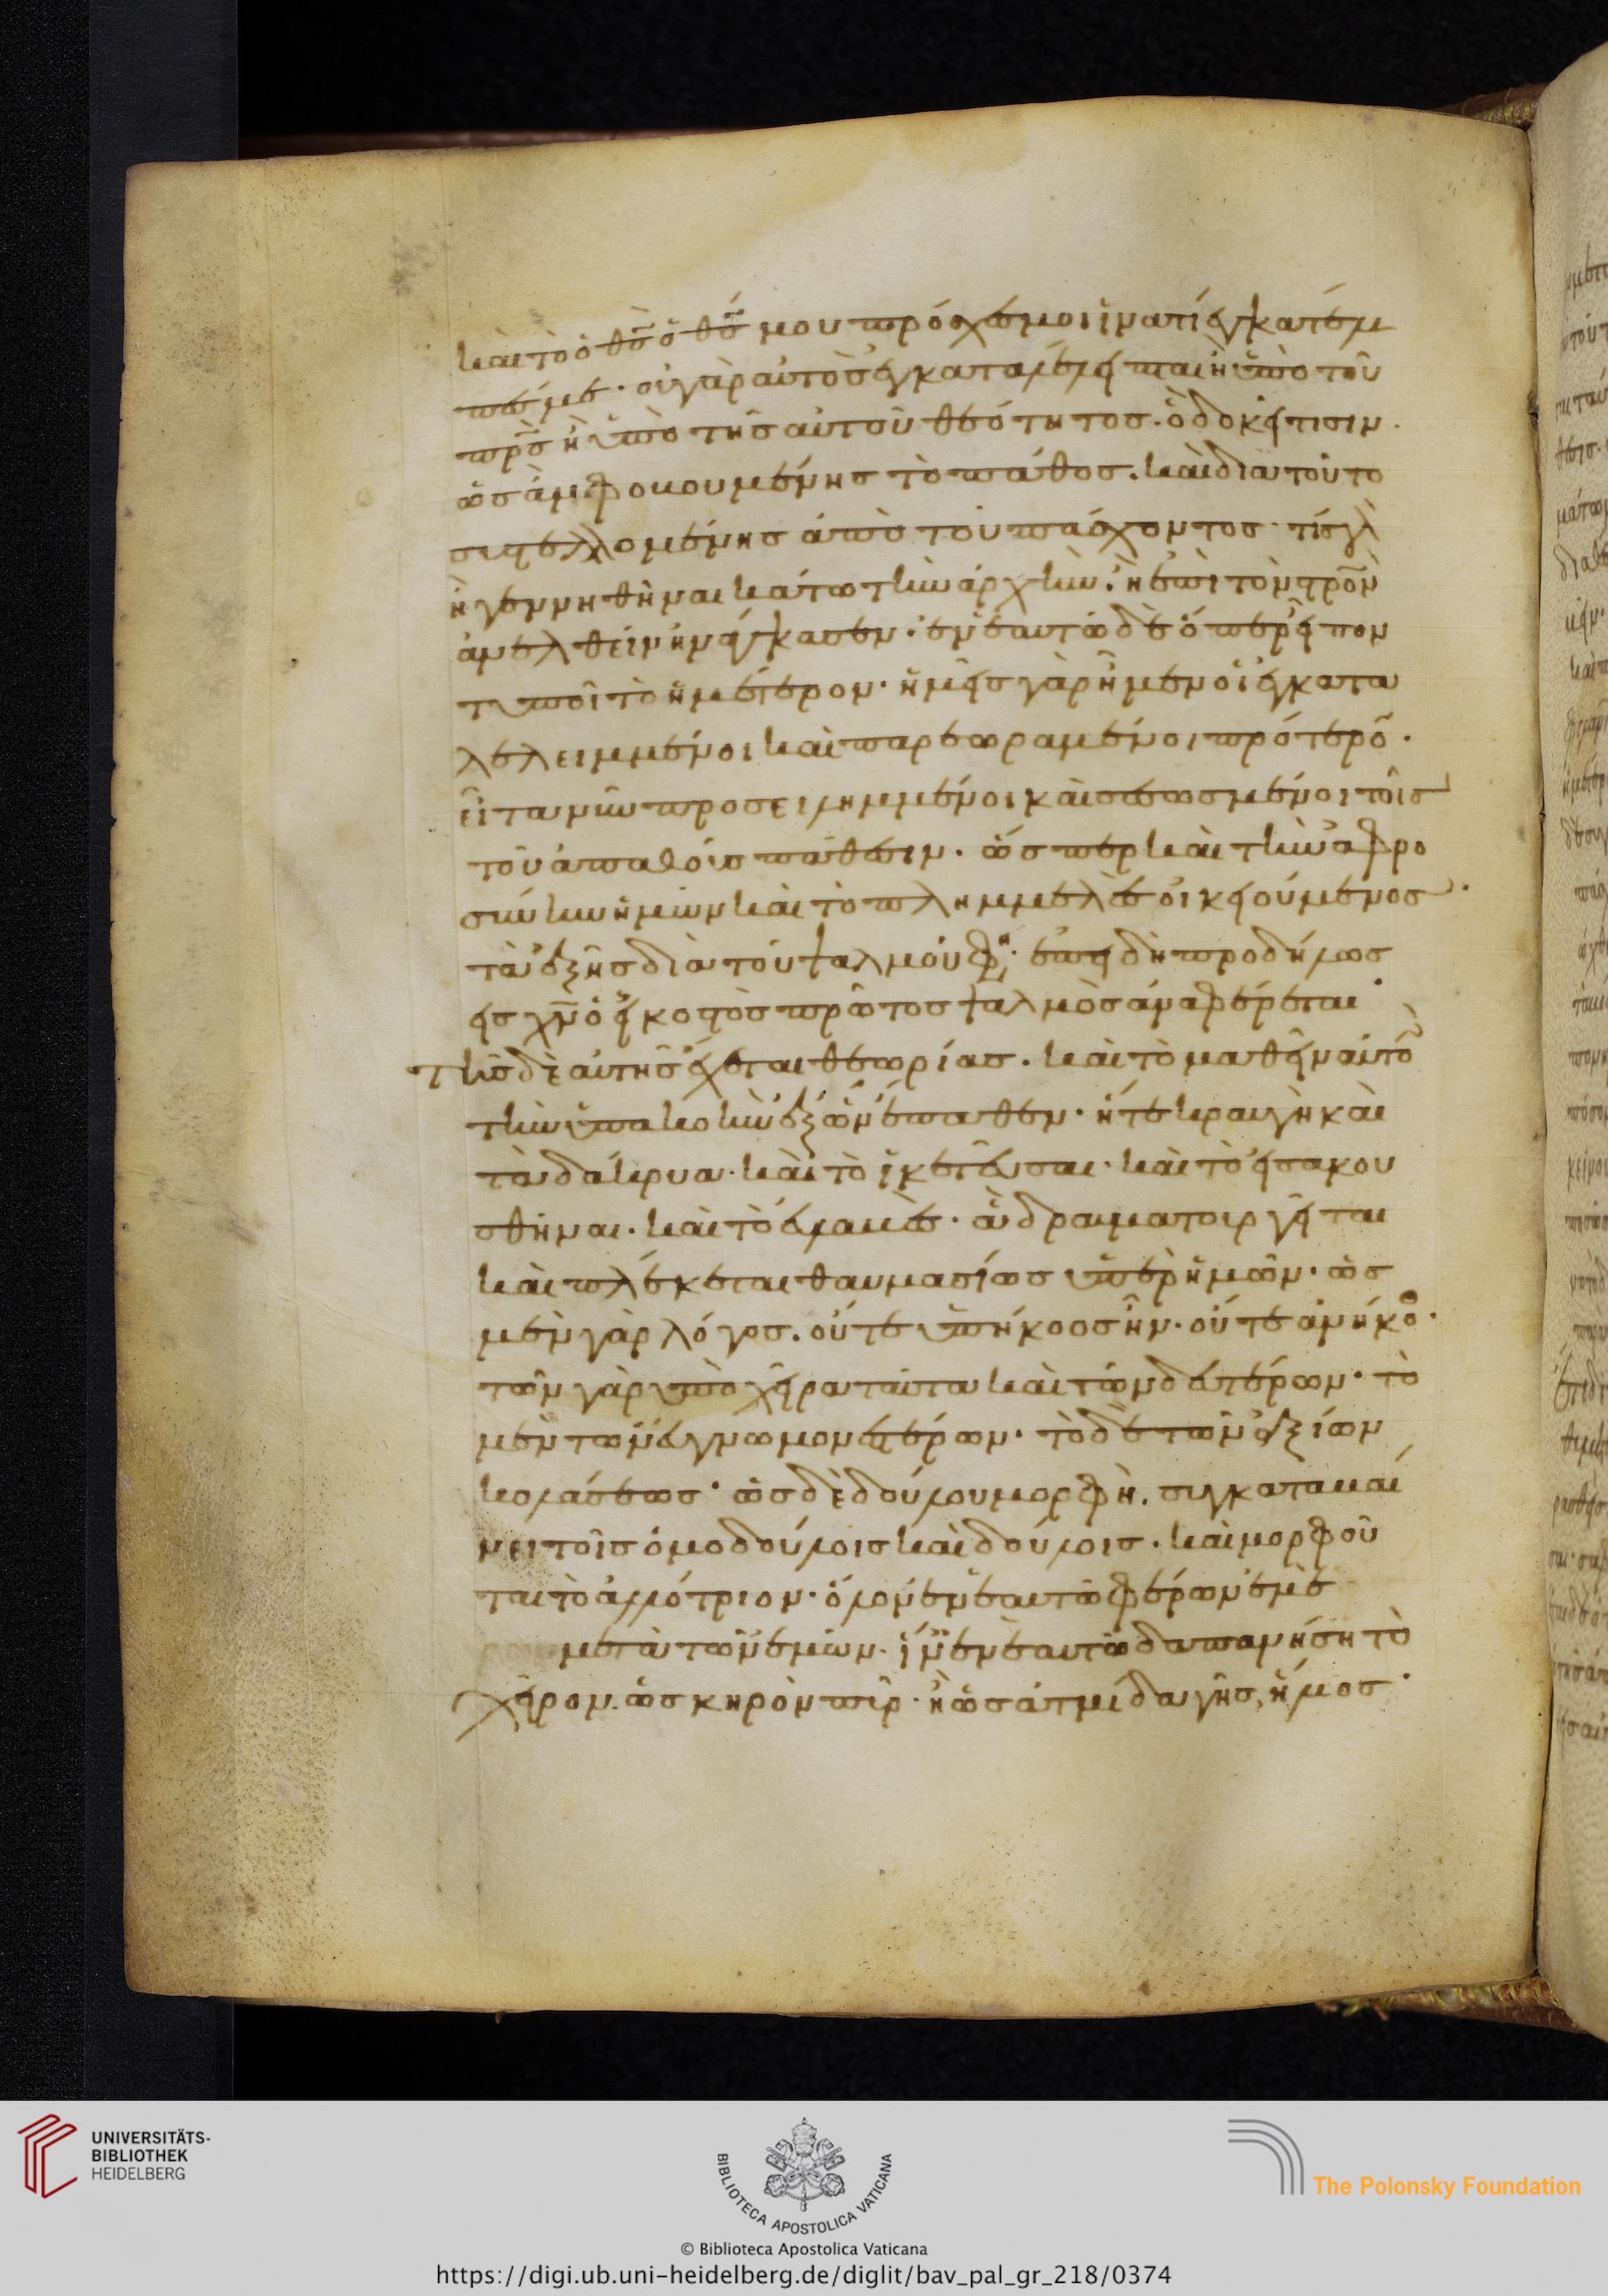 καὶ τὸ ὁ θς ὁ θς μου πρόσχες μοι ἱνατί ἐγκατέλι
πές με· οὐ γὰρ αὐτὸς ἐγκαταλέλειπται ἢ ὑπὸ τοῦ
πρς ἢ ὑπὸ τῆς αὐτοῦ θεότητος· ὃ δοκεῖ τισιν·
ὡς ἂν φοβουμένης τὸ πάθος. καὶ διατοῦτο
συστελλομένης ἀπὸ τοῦ πάσχοντος· τίς γὰρ
ἢ γεννηθῆναι κάτω τὴν ἀρχὴν· ἢ ἐπὶ τὸν σρον
ἀνελθεῖν ἠνάγκασεν· ἐν ἑαυτῷ δὲ ὅπερ εἶπον
τυποῖ τὸ ἡμέτερον· ἡμεῖς γὰρ ἦμεν οἱ ἐγκατα
λελειμμένοι καὶ παρεωραμένοι πρότερον·
εἶτα νῦν προσειλημμένοι καὶ σεσωσμένοι τοῖς
τοῦ ἀπαθοῦς πάθεσιν· ὥσπερ καὶ τὴν ἀφρο
σύνην ἡμῶν καὶ τὸ πλημμελὲς οἰκειούμενος·
τὰ ἑξῆς διὰ τοῦ ψαλμοῦ φησι· ἐπειδὴ προδήλως
εἰς χν ὁ εἰκοστὸς πρῶτος ψαλμὸς ἀναφέρεται·
τῆς δὲ αὐτῆς ἔχεται θεωρίας. καὶ τὸ μαθεῖν αὐτὸν
τὴν ὑπακοὴν ἐξ ὧν ἔπαθεν· ἥτε κραυγὴ καὶ
τὰ δάκρυα· καὶ τὸ ἱκετεῦσαι· καὶ τὸ εἰσακου
σθῆναι. καὶ τὸ εὐλαβές· ἃ δραματουργεῖται
καὶ πλέκεται θαυμασίως ὑπὲρ ἡμῶν· ὡς
μὲν γὰρ λόγος. οὔτε ὑπήκοος ἦν· οὔτε ἀνήκοος·
τῶν γὰρ ὑπὸ χεῖρα ταῦτα καὶ τῶν δευτέρων· τὸ
μὲν τῶν εὐγνωμονεστέρων· τὸ δὲ τῶν ἀξίων
κολάσεως· ὡς δὲ δούλου μορφὴ. συγκαταβαί
νει τοῖς ὁμοδούλοις καὶ δούλοις. καὶ μορφοῦ
ται τὸ ἀλλότριον· ὅλον ἐν ἑαυτῷ φέρων ἐμὲ
μετὰ τῶν ἐμῶν· ἵν' ἐν ἑαυτῷ δαπανήση τὸ
χεῖρον. ὡς κηρὸν πῦρ· ἢ ὡς ἀτμίδα γῆς, ἥλιος·
UNIVERSITÄTS-
BIBLIOTHEK
HEIDELBERG
BIBLIOTECA APOSTOLICA VATICANA
The Polonsky Foundation
© Biblioteca Apostolica Vaticana
https://digi.ub.uni-heidelberg.de/diglit/bav_pal_gr_218/0374